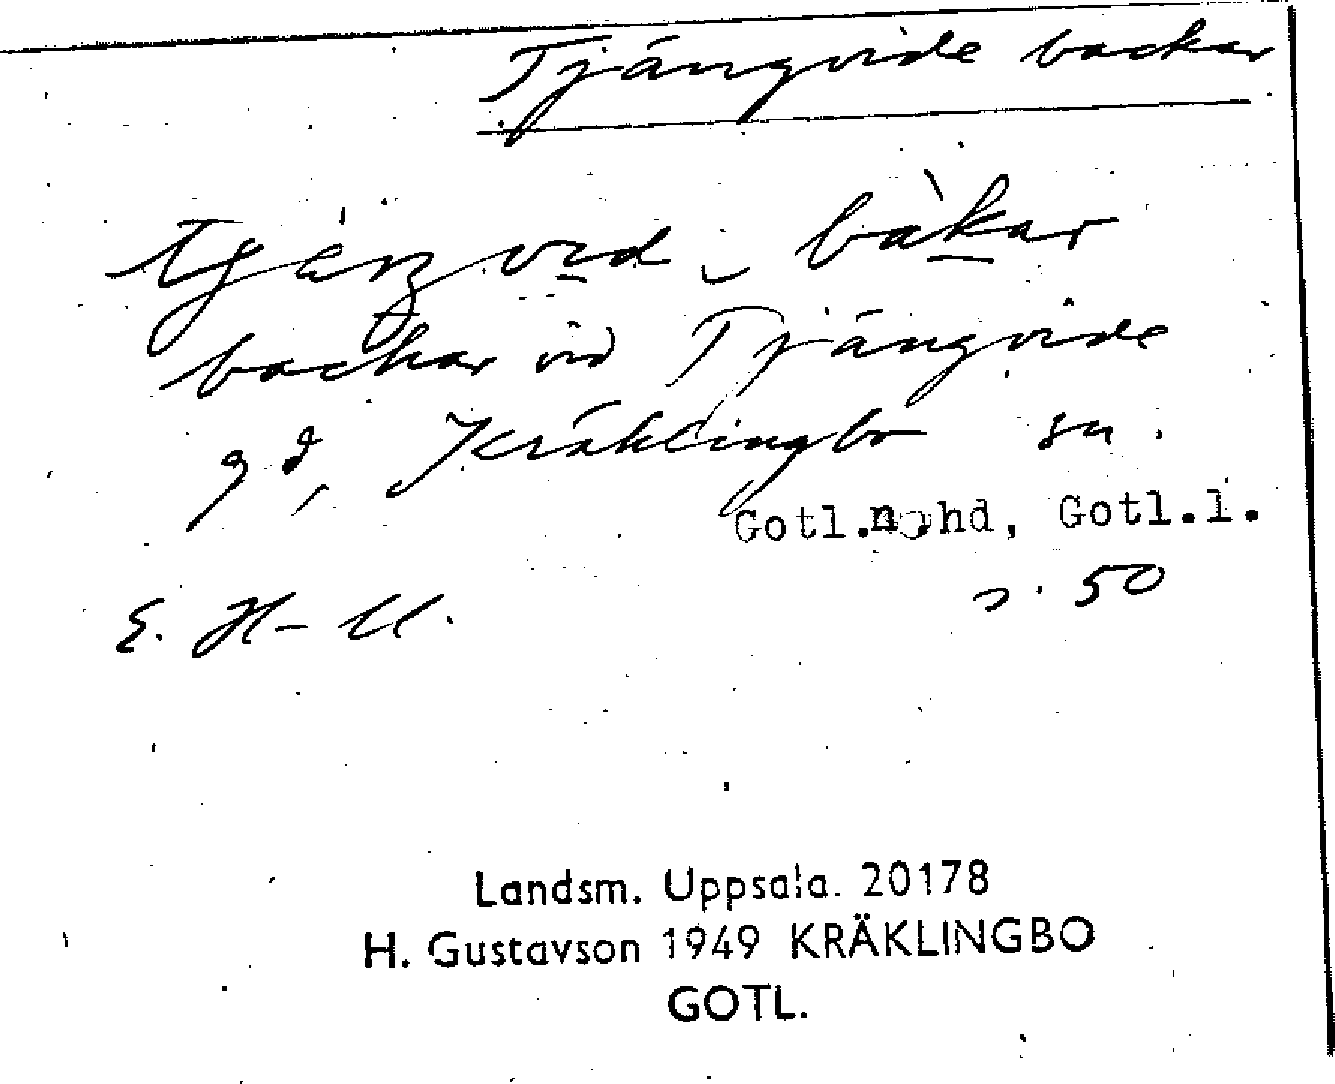 Tjängvide backar
backar vid Tjängvide
gd, Kräklingbo sn.
Gotl.n.hd, Gotl.l.
E. H-U. s. 50
Landsm. Uppsala. 20178
H. Gustavson 1949 KRÄKLINGBO
GOTL.